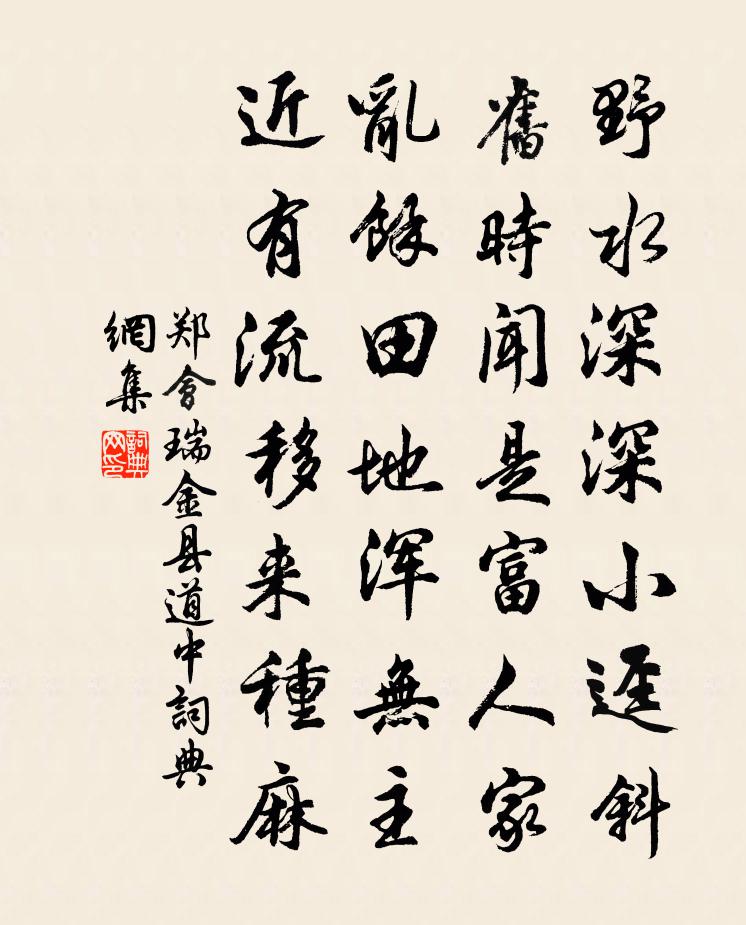 野水深深小逕斜
舊時聞是富人家
亂餘田地浑無主
近有流移来種麻
郑會瑞金县道中詞典
網集
詞典
网印